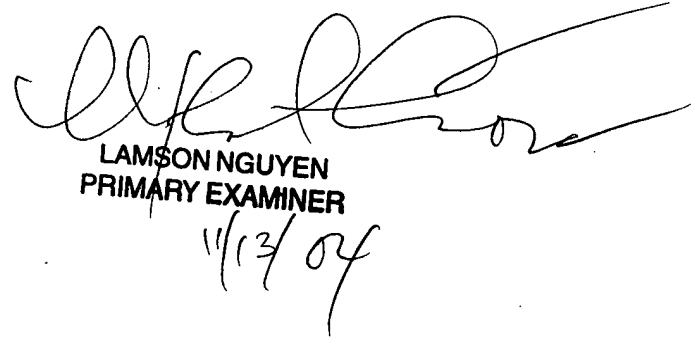 LAMSON NGUYEN
PRIMARY EXAMINER
11/13/04